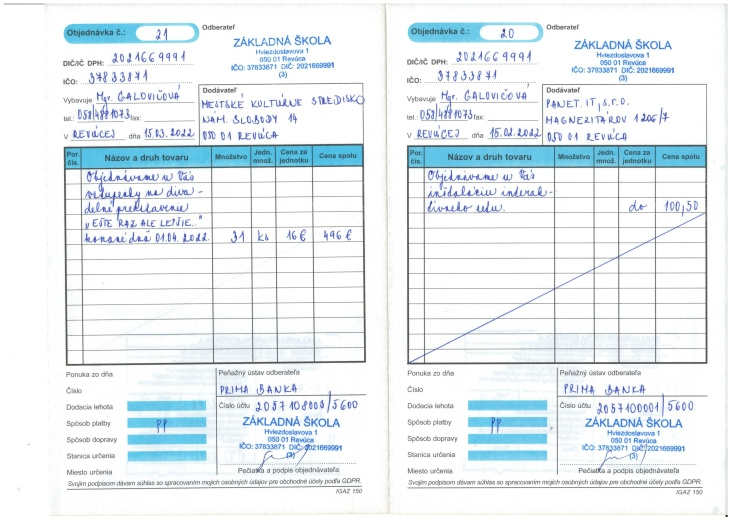 Objednávka č.: 21
Odberateľ
ZÁKLADNÁ ŠKOLA
Hviezdoslavova 1
050 01 Revúca
IČO: 37833871 DIČ: 2021669991
(3)
DIČ/IČ DPH: 2021669991
IČO: 37833871
Vybavuje Mgr. GALOVIČOVÁ
tel.: 058/4881073 fax:
V REVÚCEJ dňa 15.03.2022
Dodávateľ
MESTSKÉ KULTÚRNE STREDISKO
NÁM. SLOBODY 14
050 01 REVÚCA
Por. čís. Názov a druh tovaru Množstvo Jedn. množ. Cena za jednotku Cena spolu
Objednávame u Vás
vstupenky na diva-
delné predstavenie
"EŠTE RAZ ALE LEPŠIE."
konané dňa 01.04.2022. 31 ks 16€ 496€
Ponuka zo dňa
Číslo
Dodacia lehota
Spôsob platby PP
Spôsob dopravy
Stanica určenia
Miesto určenia
Peňažný ústav odberateľa
PRIMA BANKA
Číslo účtu 2057108001/5600
ZÁKLADNÁ ŠKOLA
Hviezdoslavova 1
050 01 Revúca
IČO: 37833871 DIČ: 2021669991
(3)
Pečiatka a podpis objednávateľa
Svojím podpisom dávam súhlas so spracovaním mojich osobných údajov pre obchodné účely podľa GDPR.
IGAZ 150
Objednávka č.: 20
Odberateľ
ZÁKLADNÁ ŠKOLA
Hviezdoslavova 1
050 01 Revúca
IČO: 37833871 DIČ: 2021669991
(3)
DIČ/IČ DPH: 2021669991
IČO: 37833871
Vybavuje Mgr. GALOVIČOVÁ
tel.: 058/4881073 fax:
V REVÚCEJ dňa 15.02.2022
Dodávateľ
PANET. IT, s.r.o.
MAGNEZITÁROV 1206/7
050 01 REVÚCA
Por. čís. Názov a druh tovaru Množstvo Jedn. množ. Cena za jednotku Cena spolu
Objednávame u Vás
inštaláciu interak-
tívneho setu. do 100,50
Ponuka zo dňa
Číslo
Dodacia lehota
Spôsob platby PP
Spôsob dopravy
Stanica určenia
Miesto určenia
Peňažný ústav odberateľa
PRIMA BANKA
Číslo účtu 2057100001/5600
ZÁKLADNÁ ŠKOLA
Hviezdoslavova 1
050 01 Revúca
IČO: 37833871 DIČ: 2021669991
(3)
Pečiatka a podpis objednávateľa
Svojím podpisom dávam súhlas so spracovaním mojich osobných údajov pre obchodné účely podľa GDPR.
IGAZ 150